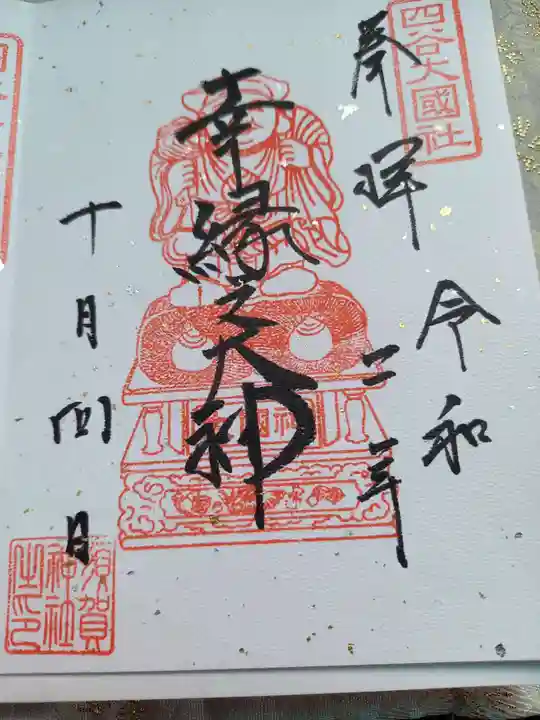 四谷大國社
奉拝
令和
二年
幸縁之大神
十月四日
須賀
神社
之印